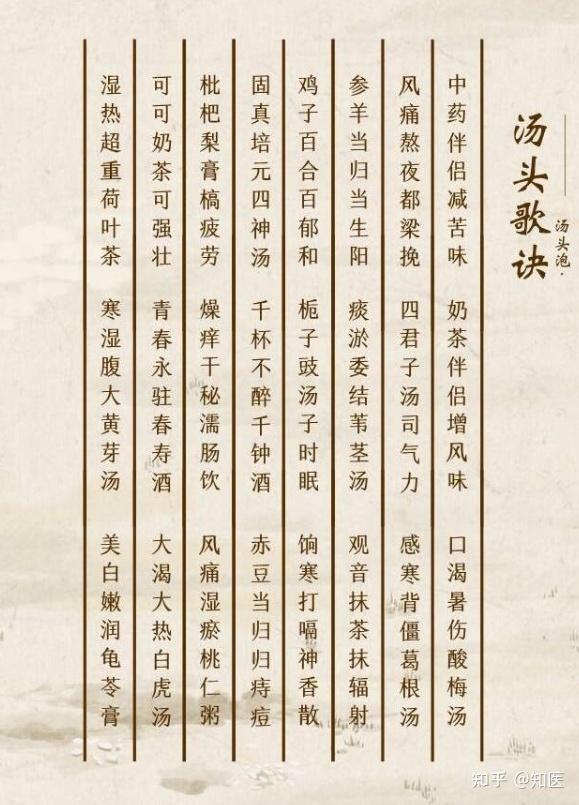 汤头歌诀
汤头泡·
中药伴侣减苦味 奶茶伴侣增风味 口渴暑伤酸梅汤
风痛熬夜都梁挽 四君子汤司气力 感寒背僵葛根汤
参羊当归当生阳 痰淤委结苇茎汤 观音抹茶抹辐射
鸡子百合百郁和 栀子豉汤子时眠 饷寒打嗝神香散
固真培元四神汤 千杯不醉千钟酒 赤豆当归归痔痘
枇杷梨膏槁疲劳 燥痒干秘濡肠饮 风痛湿瘀桃仁粥
可可奶茶可强壮 青春永驻春寿酒 大渴大热白虎汤
湿热超重荷叶茶 寒湿腹大黄芽汤 美白嫩润龟苓膏
知乎 @知医